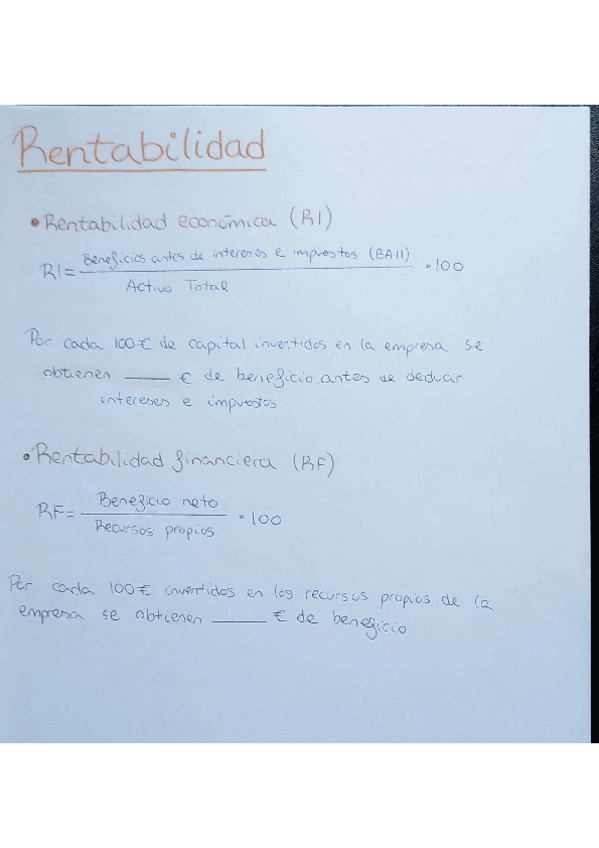 Rentabilidad
• Rentabilidad económica (RI)
RI = Beneficios antes de intereses e impuestos (BAII) / Activo Total · 100
Por cada 100€ de capital invertidos en la empresa se
obtienen ____ € de beneficio antes de deducir
intereses e impuestos
• Rentabilidad financiera (RF)
RF = Beneficio neto / Recursos propios · 100
Por cada 100€ invertidos en los recursos propios de la
empresa se obtienen ____ € de beneficio